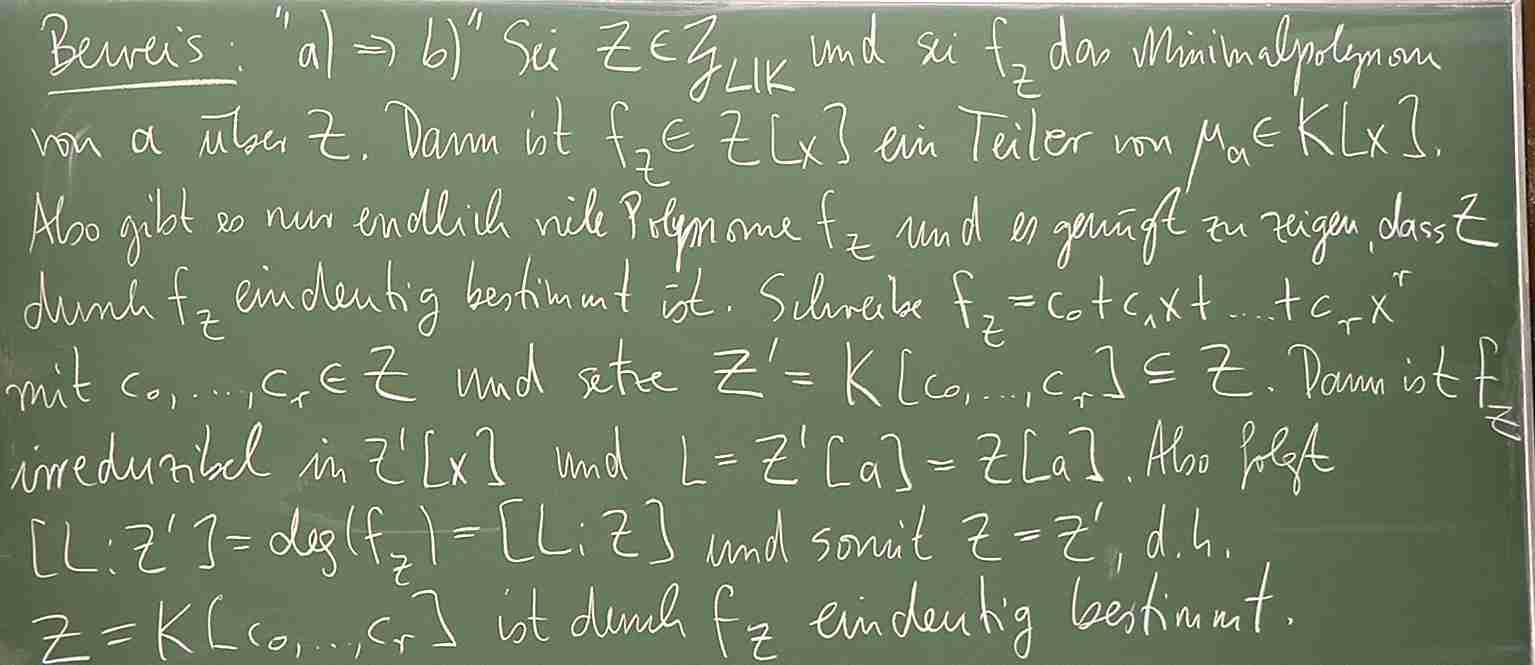 Beweis: "a) ⇒ b)" Sei Z ∈ 𝒵_{L|K} und sei f_Z das Minimalpolynom
von a über Z. Dann ist f_Z ∈ Z[x] ein Teiler von μ_a ∈ K[x].
Also gibt es nur endlich viele Polynome f_Z und es genügt zu zeigen, dass Z
durch f_Z eindeutig bestimmt ist. Schreibe f_Z = c_0 + c_1 x + .... + c_r x^r
mit c_0, ..., c_r ∈ Z und setze Z' = K[c_0, ..., c_r] ⊆ Z. Dann ist f_Z
irreduzibel in Z'[x] und L = Z'[a] = Z[a]. Also folgt
[L:Z'] = deg(f_Z) = [L:Z] und somit Z = Z', d.h.
Z = K[c_0, ..., c_r] ist durch f_Z eindeutig bestimmt.